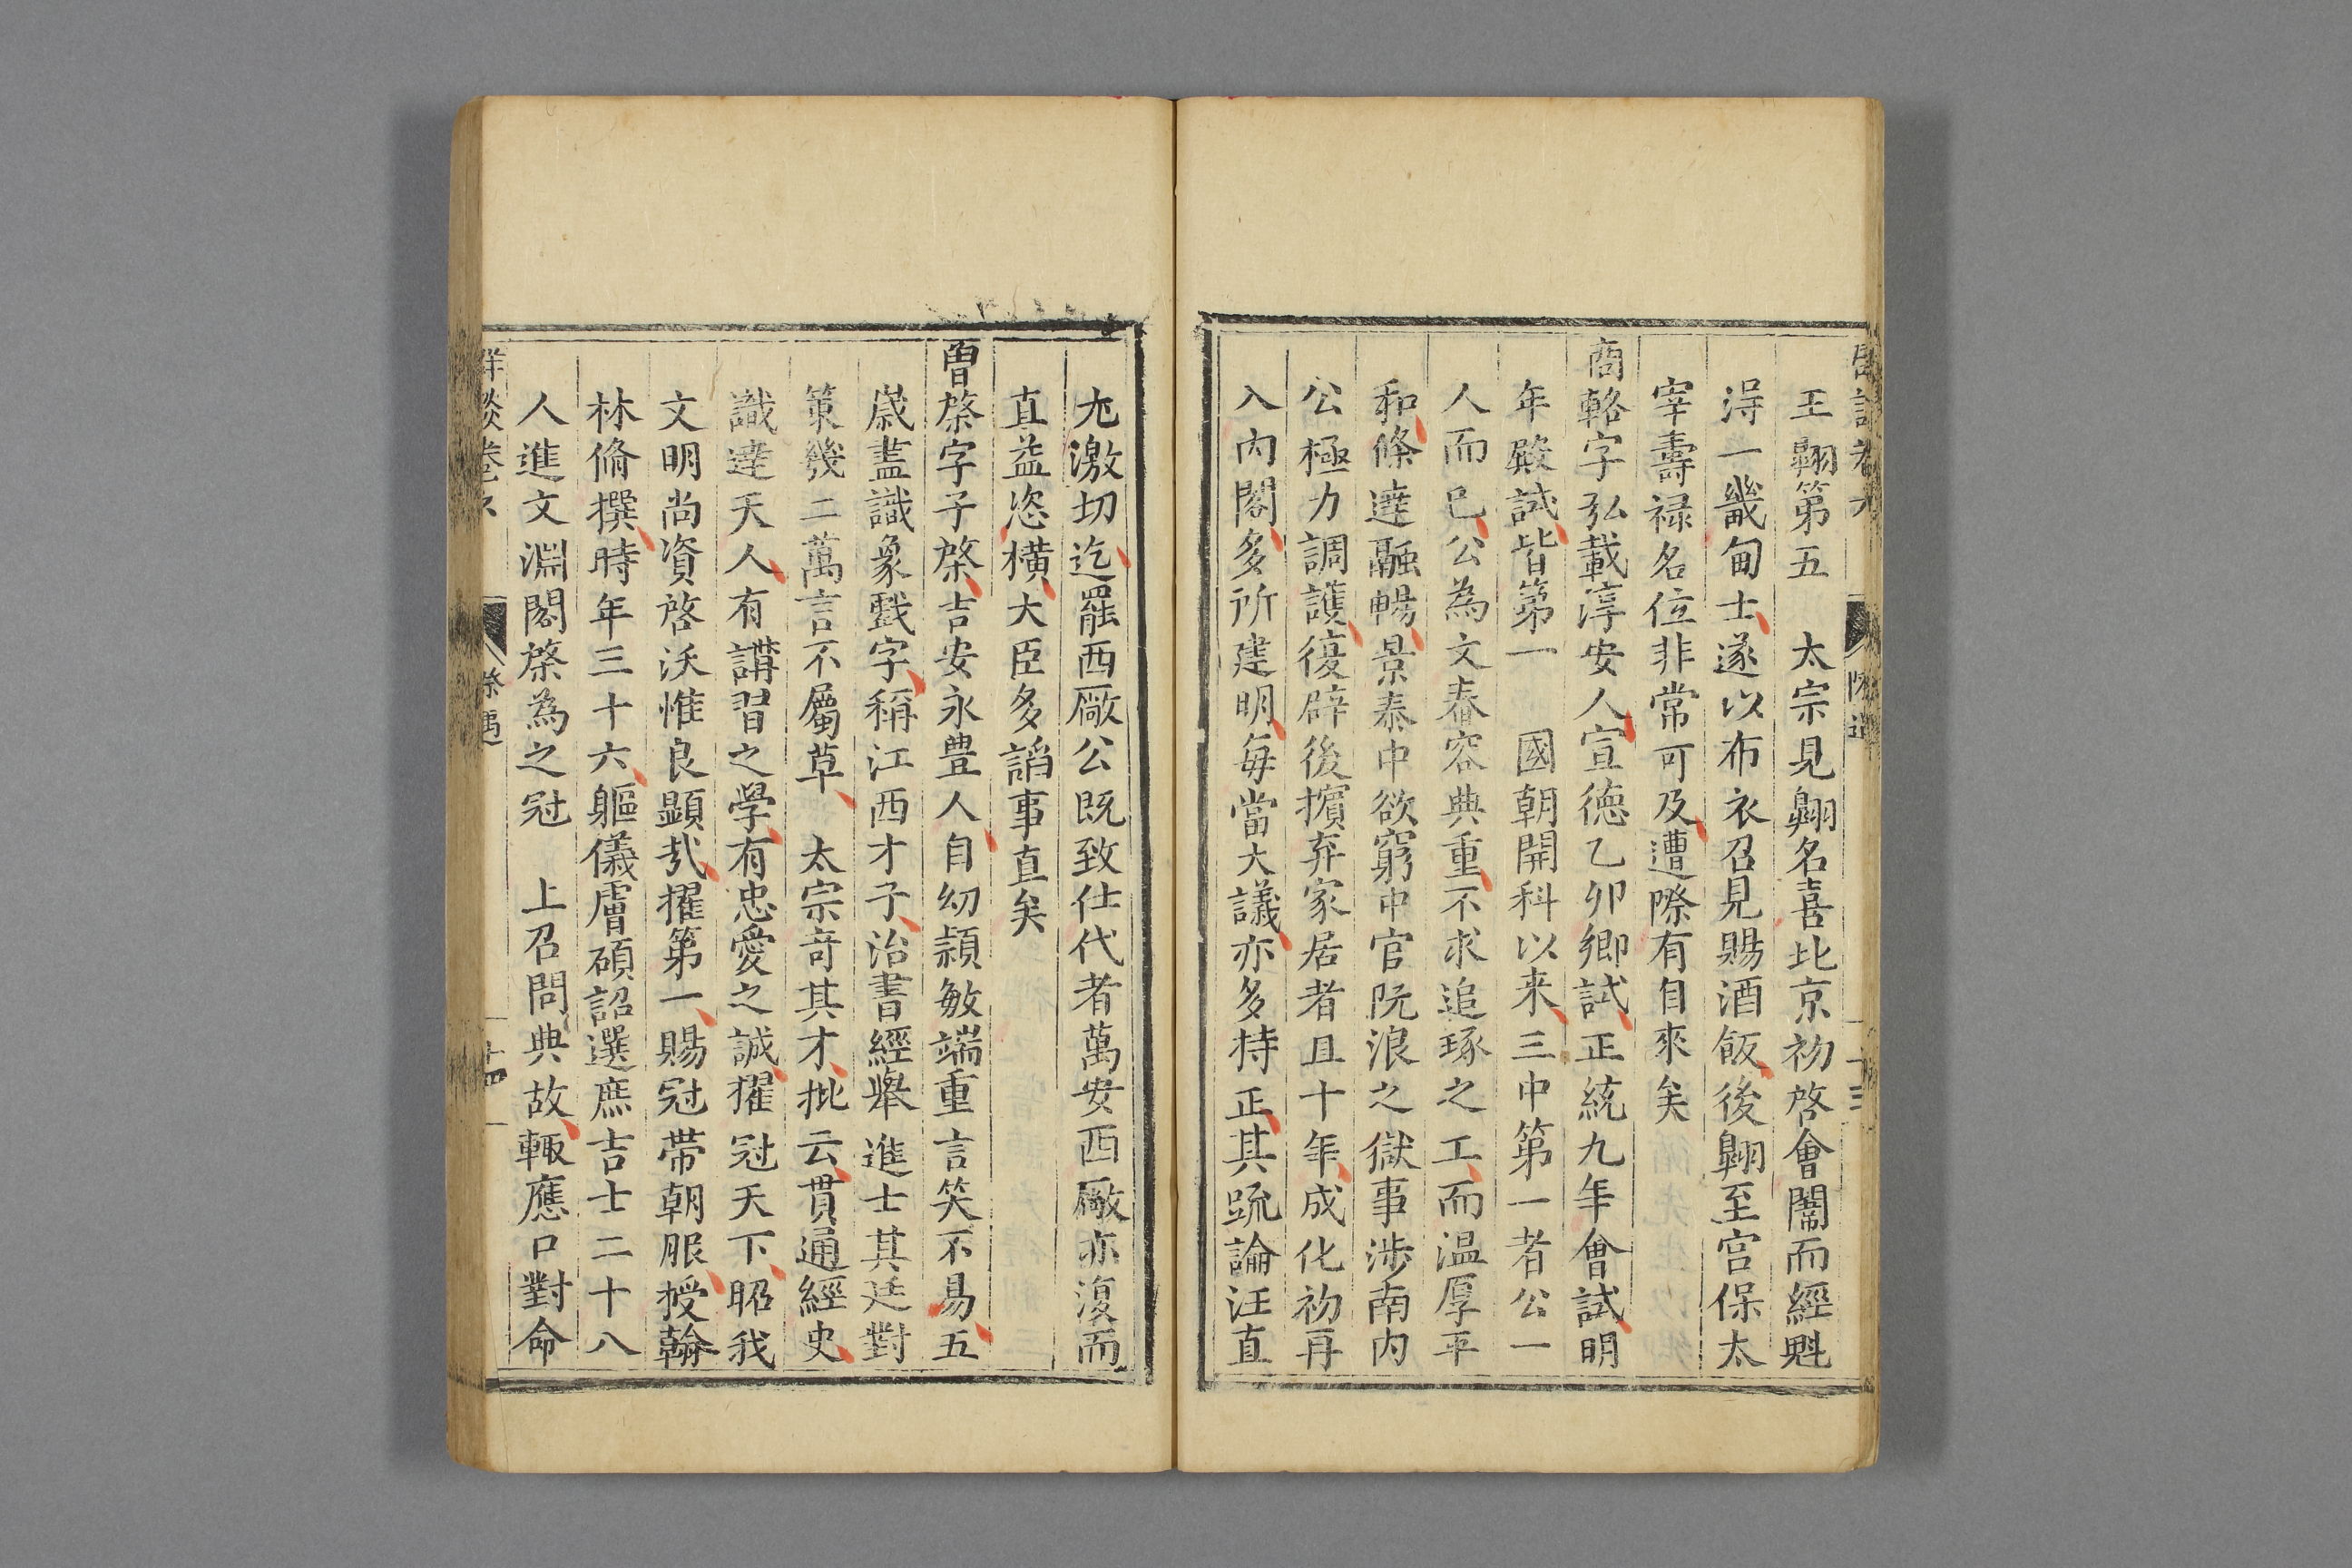 王翺第五　太宗見翺名喜北京初啓會闈而經魁
淂一畿甸士遂以布衣召見賜酒飯後翺至宫保太
宰壽禄名位非常可及遭際有自來矣
商輅字弘載淳安人宣德乙卯鄉試正統九年會試明
年殿試皆第一　國朝開科以来三中第一者公一
人而已公為文春容典重不求追琢之工而温厚平
和條達融暢景泰中欲窮中官阮浪之獄事涉南内
公極力調護復辟後擯弃家居者且十年成化初再
入内閣多所建明毎當大議亦多持正其疏論汪直
尤激切迄罷西厰公既致仕代者萬安西厰亦復而
直益恣横大臣多謟事直矣
曾棨字子棨吉安永豊人自幼頴敏端重言笑不易五
歲盡識象戲字稱江西才子治書經舉進士其廷對
策幾二萬言不屬草　太宗竒其才批云貫通經史
識達天人有講習之學有忠愛之誠擢冠天下昭我
文明尚資啓沃惟良顕㢤擢第一賜冠帯朝服授翰
林脩撰時年三十六軀儀膚碩詔選庶吉士二十八
人進文淵閣棨為之冠　上召問典故輙應口對命
群談卷六　際遇　十四